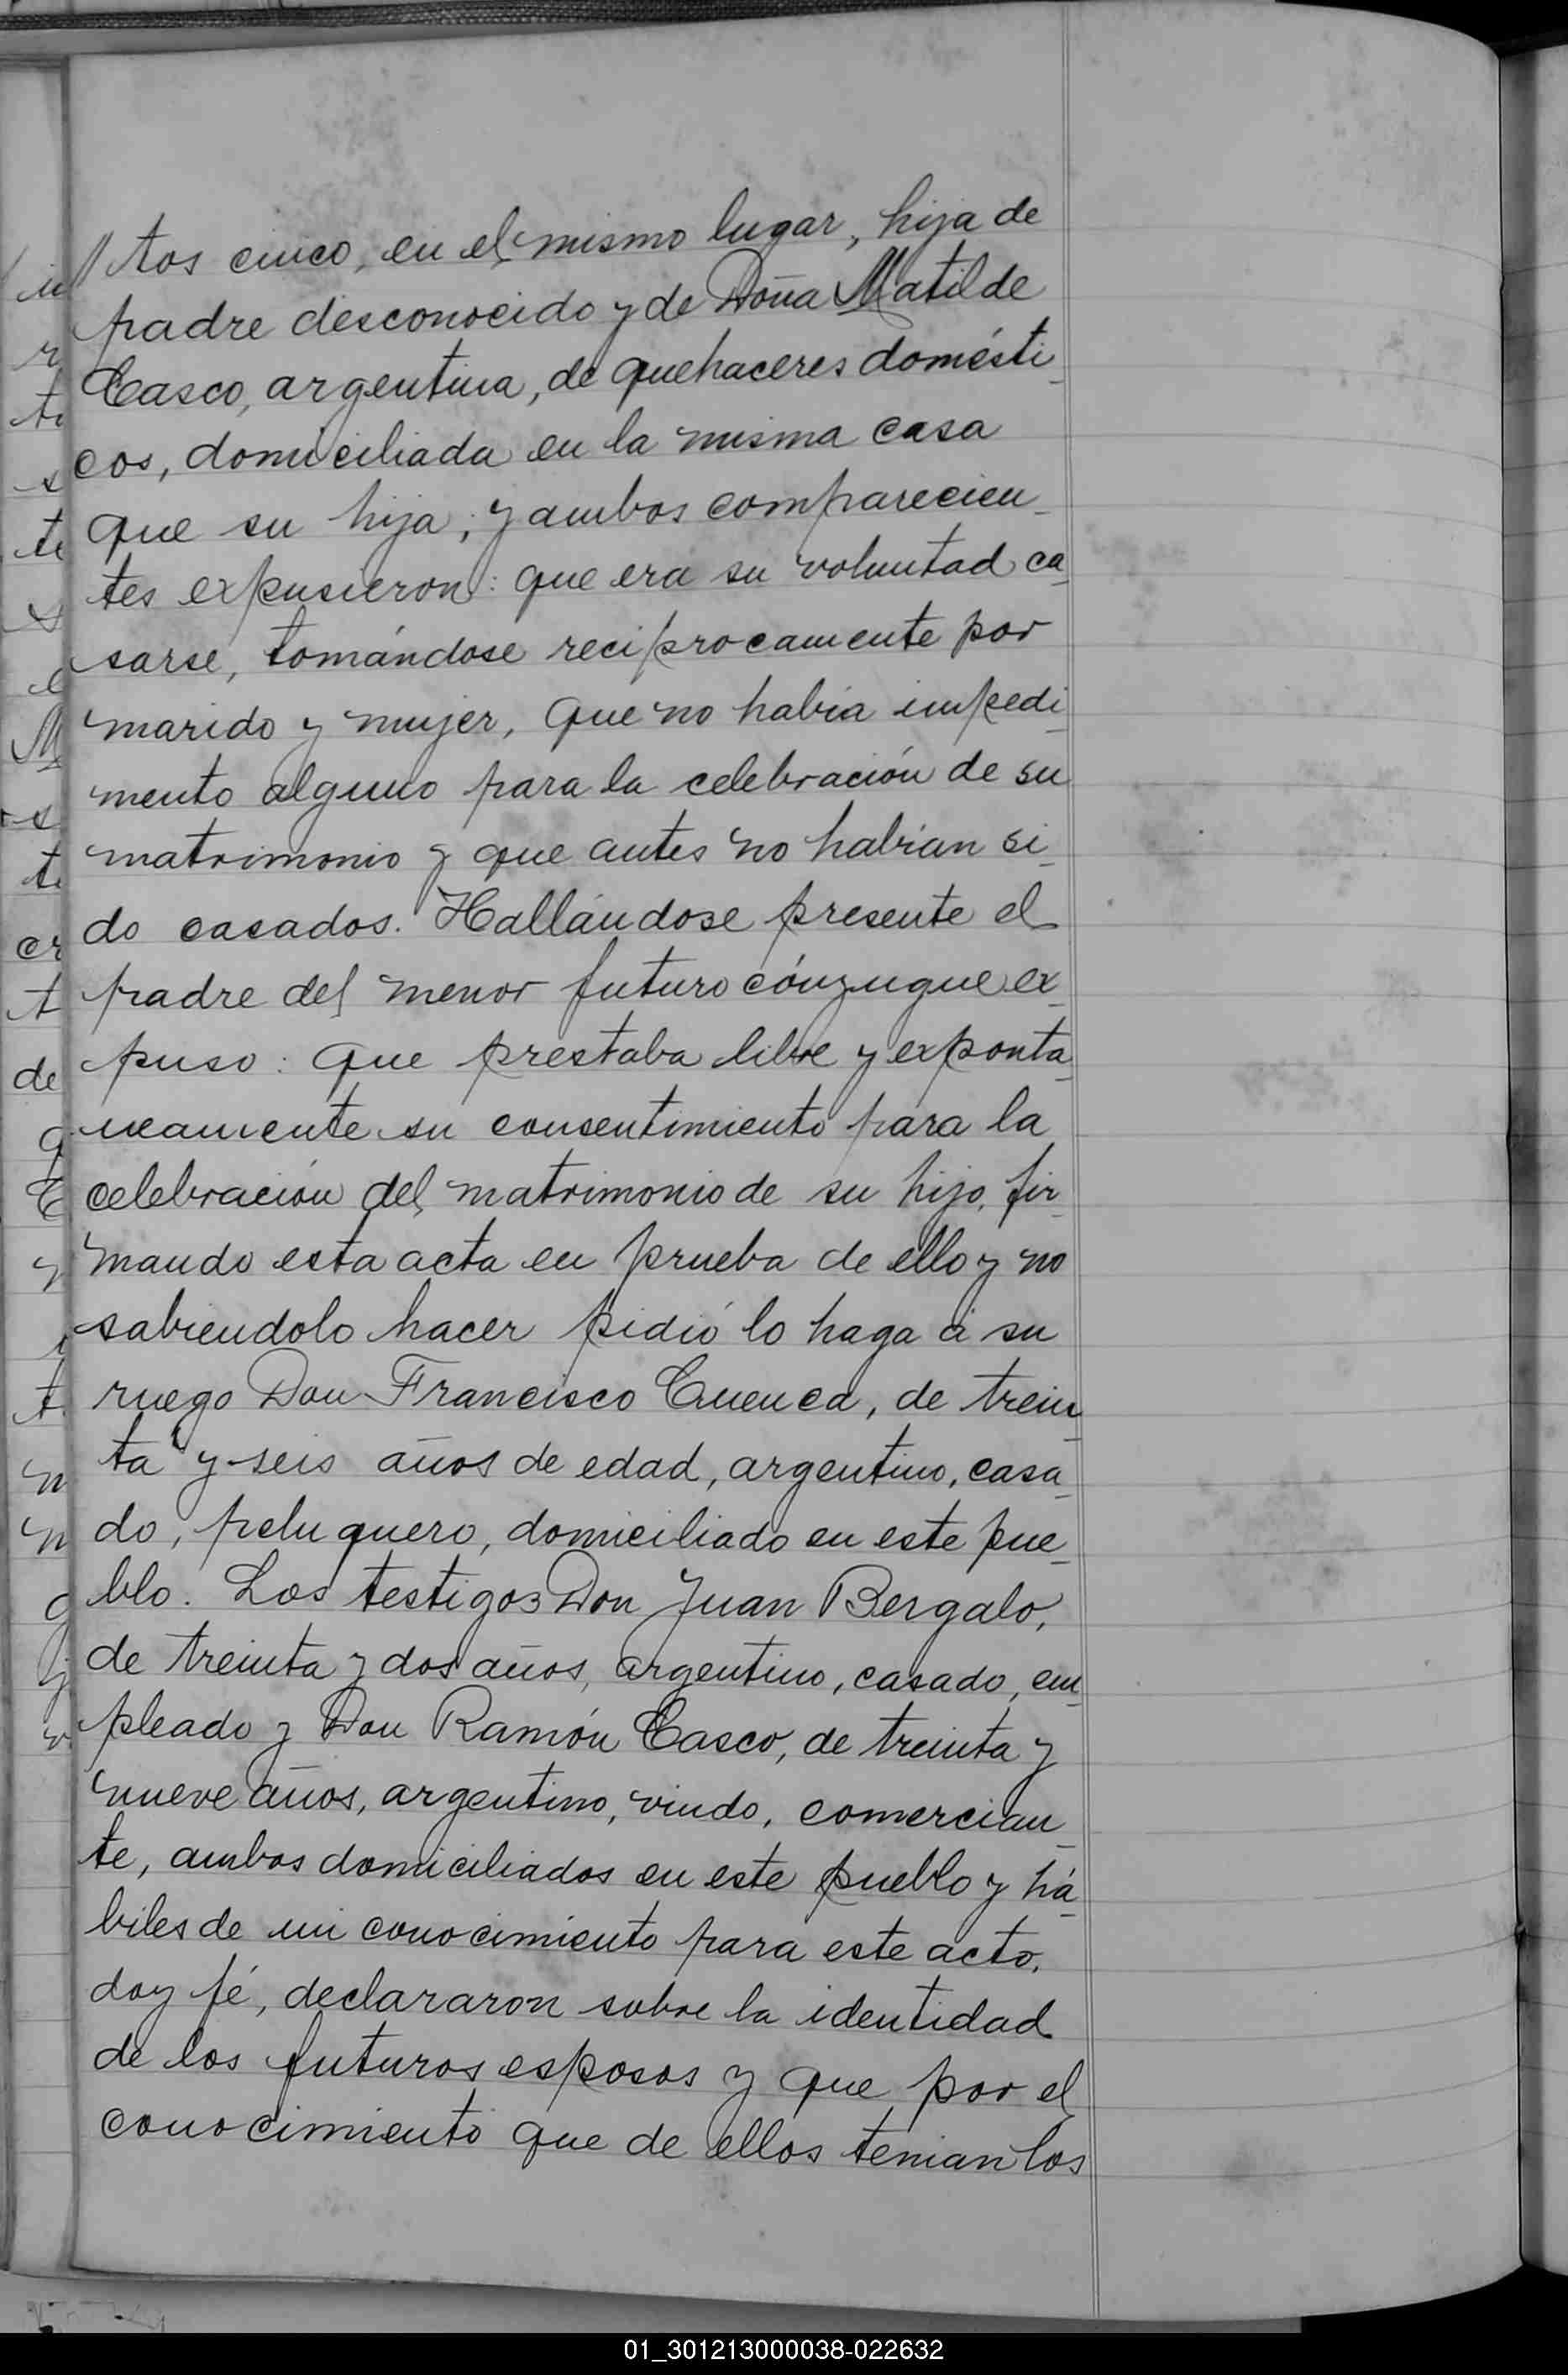 tos cinco, en el mismo lugar, hija de
padre desconocido y de Doña Matilde
Casco, argentina, de quehaceres domésti_
cos, domiciliada en la misma casa
que su hija; y ambos comparecien_
tes expusieron: que era su voluntad ca_
sarse, tomándose reciprocamente por
marido y mujer, que no habia impedi_
mento alguno para la celebración de su
matrimonio y que antes no habian si_
do casados. Hallándose presente el
padre del menor futuro cónyugue ex_
puso: que prestaba libre y exponta_
neamente su consentimiento para la
celebración del matrimonio de su hijo, fir_
mando esta acta en prueba de ello y no
sabiendolo hacer pidió lo haga á su
ruego Don Francisco Cuenca, de trein_
ta y seis años de edad, argentino, casa_
do, peluquero, domiciliado en este pue_
blo. Los testigos Don Juan Bergalo,
de treinta y dos años, argentino, casado, em_
pleado y Don Ramón Casco, de treinta y
nueve años, argentino, viudo, comercian_
te, ambos domiciliados en este pueblo y há_
biles de mi conocimiento para este acto,
doy fé, declararon sobre la identidad
de los futuros esposos y que por el
conocimiento que de ellos tenian los
01_301213000038-022632